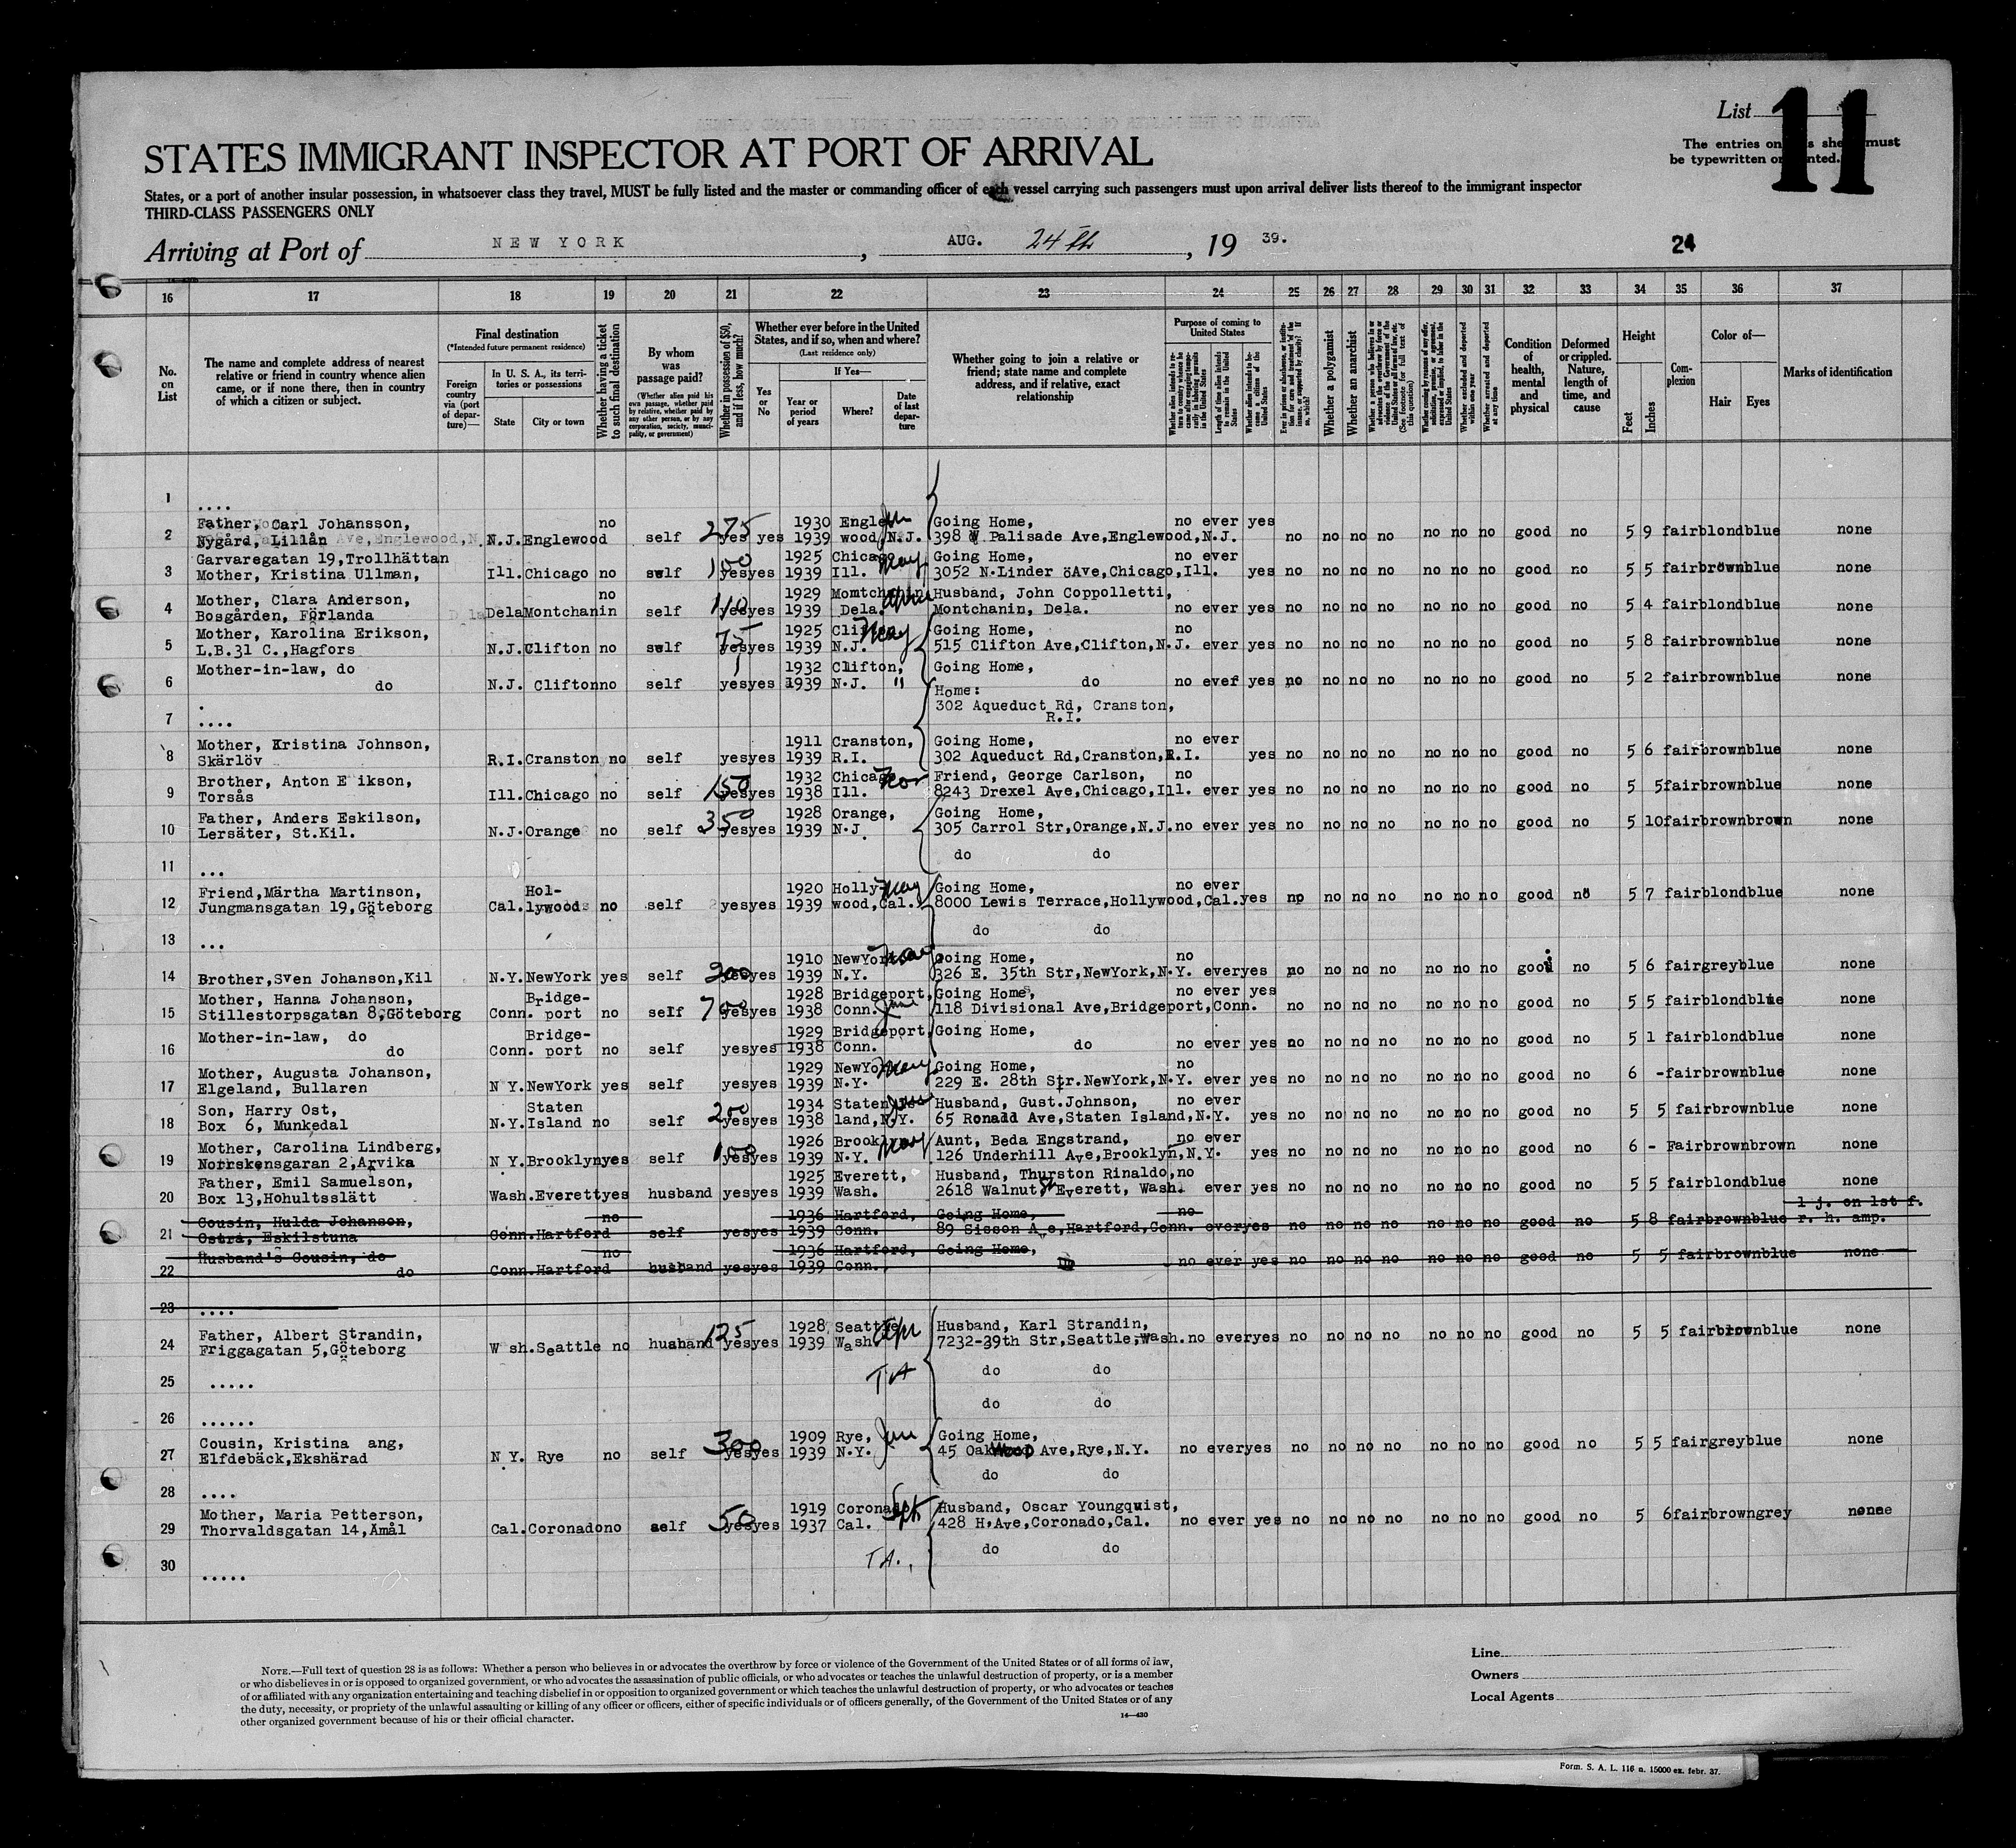 List 11
The entries on this sheet must
be typewritten or printed.
STATES IMMIGRANT INSPECTOR AT PORT OF ARRIVAL
States, or a port of another insular possession, in whatsoever class they travel, MUST be fully listed and the master or commanding officer of each vessel carrying such passengers must upon arrival deliver lists thereof to the immigrant inspector
THIRD-CLASS PASSENGERS ONLY
Arriving at Port of NEW YORK, AUG. 24th, 19 39.
24
16 17 18 19 20 21 22 23 24 25 26 27 28 29 30 31 32 33 34 35 36 37
No. on List
The name and complete address of nearest relative or friend in country whence alien came, or if none there, then in country of which a citizen or subject.
Final destination
(*Intended future permanent residence)
Foreign country via (port of departure)—
In U. S. A., its territories or possessions
State City or town
Whether having a ticket to such final destination
By whom was passage paid?
(Whether alien paid his own passage, whether paid by relative, whether paid by any other person, or by any corporation, society, municipality, or government)
Whether in possession of $50, and if less, how much?
Whether ever before in the United States, and if so, when and where?
(Last residence only)
Yes or No
If Yes—
Year or period of years Where? Date of last departure
Whether going to join a relative or friend; state name and complete address, and if relative, exact relationship
Purpose of coming to United States
Whether a polygamist
Whether an anarchist
Condition of health, mental and physical
Deformed or crippled. Nature, length of time, and cause
Height
Feet Inches
Complexion
Color of—
Hair Eyes
Marks of identification
1 ....
2 Father, Carl Johansson, no 1930 Engle- Jun Going Home, no ever yes
Nygård, Lillån N.J. Englewood self 275 yes yes 1939 wood, N.J. 398 W Palisade Ave, Englewood, N.J. no no no no no no no good no 5 9 fair blond blue none
Garvaregatan 19, Trollhättan 1925 Chicago May Going Home, no ever
3 Mother, Kristina Ullman, Ill. Chicago no self 100 yes yes 1939 Ill. 3052 N. Linder öAve, Chicago, Ill. yes no no no no no no no good no 5 5 fair brown blue none
Mother, Clara Anderson, no 1929 Momtchanin April Husband, John Coppolletti,
4 Bosgården, Förlanda Dela Montchanin self 110 yes yes 1939 Dela. Montchanin, Dela. no ever yes no no no no no no no good no 5 4 fair blond blue none
Mother, Karolina Erikson, 1925 May Going Home, no
5 L.B.31 C., Hagfors N.J. Clifton no self 75 yes yes 1939 N.J. 515 Clifton Ave, Clifton, N.J. ever yes no no no no no no no good no 5 8 fair brown blue none
Mother-in-law, do 1932 Clifton, Going Home,
6 do N.J. Clifton no self yes yes 1939 N.J. " do no ever yes no no no no no no no good no 5 2 fair brown blue none
Home:
302 Aqueduct Rd, Cranston,
7 .... R.I.
Mother, Kristina Johnson, 1911 Cranston, Going Home, no ever
8 Skärlöv R.I. Cranston no self yes yes 1939 R.I. 302 Aqueduct Rd, Cranston, R.I. yes no no no no no no no good no 5 6 fair brown blue none
Brother, Anton E ikson, 1932 Chicago Nov Friend, George Carlson, no
9 Torsås Ill. Chicago no self 150 yes yes 1938 Ill. 8243 Drexel Ave, Chicago, Ill. ever yes no no no no no no no good no 5 5 fair brown blue none
Father, Anders Eskilson, 1928 Orange, Going Home,
10 Lersäter, St.Kil. N.J. Orange no self 350 yes yes 1939 N.J. 305 Carrol Str, Orange, N.J. no ever yes no no no no no no no good no 5 10 fair brown brown none
11 ... do do
Friend, Märtha Martinson, Hol- 1920 Holly- May Going Home, no ever
12 Jungmansgatan 19, Göteborg Cal. lywood no self yes yes 1939 wood, Cal. 8000 Lewis Terrace, Hollywood, Cal. yes no no no no no no no good no 5 7 fair blond blue none
13 ... do do
1910 NewYork Going Home, no
14 Brother, Sven Johanson, Kil N.Y. NewYork yes self 300 yes yes 1939 N.Y. 326 E. 35th Str, NewYork, N.Y. ever yes no no no no no no no good no 5 6 fair grey blue none
Mother, Hanna Johanson, Bridge- 1928 Bridgeport, Going Home, no ever yes
15 Stillestorpsgatan 8, Göteborg Conn. port no self 700 yes yes 1938 Conn. June 118 Divisional Ave, Bridgeport, Conn. no no no no no no no good no 5 5 fair blond blue none
Mother-in-law, do Bridge- 1929 Bridgeport, Going Home,
16 do Conn. port no self yes yes 1938 Conn. do no ever yes no no no no no no no good no 5 1 fair blond blue none
Mother, Augusta Johanson, 1929 NewYork May Going Home, no
17 Elgeland, Bullaren N Y. NewYork yes self yes yes 1939 N.Y. 229 E. 28th Str. NewYork, N.Y. ever yes no no no no no no no good no 6 - fair brown blue none
Son, Harry Ost, Staten 1934 Staten Is- Husband, Gust. Johnson, no ever
18 Box 6, Munkedal N.Y. Island no self 200 yes yes 1938 land, N.Y. 65 Ronald Ave, Staten Island, N.Y. yes no no no no no no no good no 5 5 fair brown blue none
Mother, Carolina Lindberg, 1926 Brooklyn May Aunt, Beda Engstrand, no ever
19 Norrskensgaran 2, Arvika N Y. Brooklyn yes self 100 yes yes 1939 N.Y. 126 Underhill Ave, Brooklyn, N.Y. yes no no no no no no no good no 6 - Fair brown brown none
Father, Emil Samuelson, 1925 Everett, Husband, Thurston Rinaldo, no
20 Box 13, Hohultsslätt Wash. Everett yes husband yes yes 1939 Wash. 2618 Walnut St Everett, Wash. ever yes no no no no no no no good no 5 5 fair blond blue none
Cousin, Hulda Johanson, no 1936 Hartford, Going Home, no 1 j. on 1st f.
21 Ostra, Eskilstuna Conn. Hartford self yes yes 1939 Conn. 89 Sisson A e, Hartford, Conn. ever yes no no no no no no no good no 5 8 fair brown blue r. h. amp.
Husband's Cousin, do no 1936 Hartford, Going Home,
22 do Conn. Hartford husband yes yes 1939 Conn. no ever yes no no no no no no no good no 5 5 fair brown blue none
23 ....
Father, Albert Strandin, 1928 Seattle Apr Husband, Karl Strandin,
24 Friggagatan 5, Göteborg W sh. Seattle no husband 125 yes yes 1939 Wash. 7232-39th Str, Seattle, Wash. no ever yes no no no no no no no good no 5 5 fair brown blue none
25 ..... TA do do
26 ...... do do
Cousin, Kristina ang, 1909 Rye, Jun Going Home,
27 Elfdebäck, Ekshärad N Y. Rye no self 300 yes yes 1939 N.Y. 45 Oakwood Ave, Rye, N.Y. no ever yes no no no no no no no good no 5 5 fair grey blue none
28 .... do do
Mother, Maria Petterson, 1919 Coronado, Sept Husband, Oscar Youngquist,
29 Thorvaldsgatan 14, Åmål Cal. Coronado no self 50 yes yes 1937 Cal. 428 H, Ave, Coronado, Cal. no ever yes no no no no no no no good no 5 6 fair brown grey none
30 ..... TA. do do
NOTE.—Full text of question 28 is as follows: Whether a person who believes in or advocates the overthrow by force or violence of the Government of the United States or of all forms of law,
or who disbelieves in or is opposed to organized government, or who advocates the assassination of public officials, or who advocates or teaches the unlawful destruction of property, or is a member
of or affiliated with any organization entertaining and teaching disbelief in or opposition to organized government or which teaches the unlawful destruction of property, or who advocates or teaches
the duty, necessity, or propriety of the unlawful assaulting or killing of any officer or officers, either of specific individuals or of officers generally, of the Government of the United States or of any
other organized government because of his or their official character.
14—430
Line
Owners
Local Agents
Form. S. A. L. 116 n. 15000 ex. febr. 37.